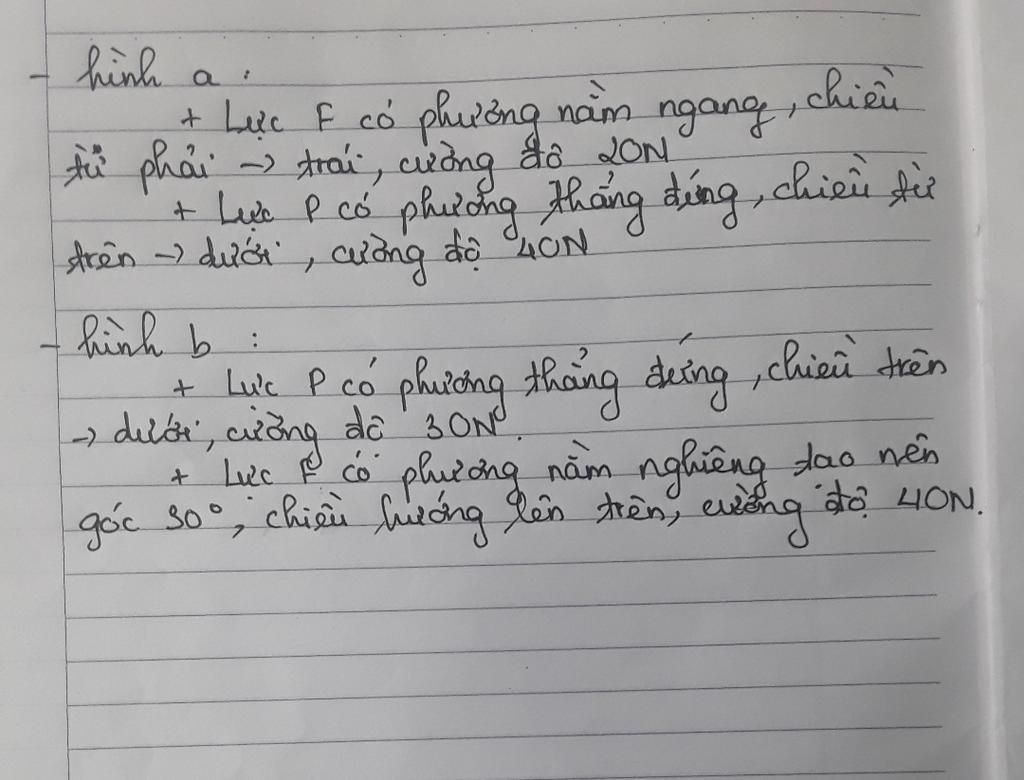 - hình a :
+ Lực F có phương nằm ngang, chiều
từ phải → trái, cường độ 20N
+ Lực P có phương thẳng đứng, chiều từ
trên → dưới, cường độ 40N
- hình b :
+ Lực P có phương thẳng đứng, chiều trên
→ dưới, cường độ 30N.
+ Lực F có phương nằm nghiêng tạo nên
góc 30°, chiều hướng lên trên, cường độ 40N.